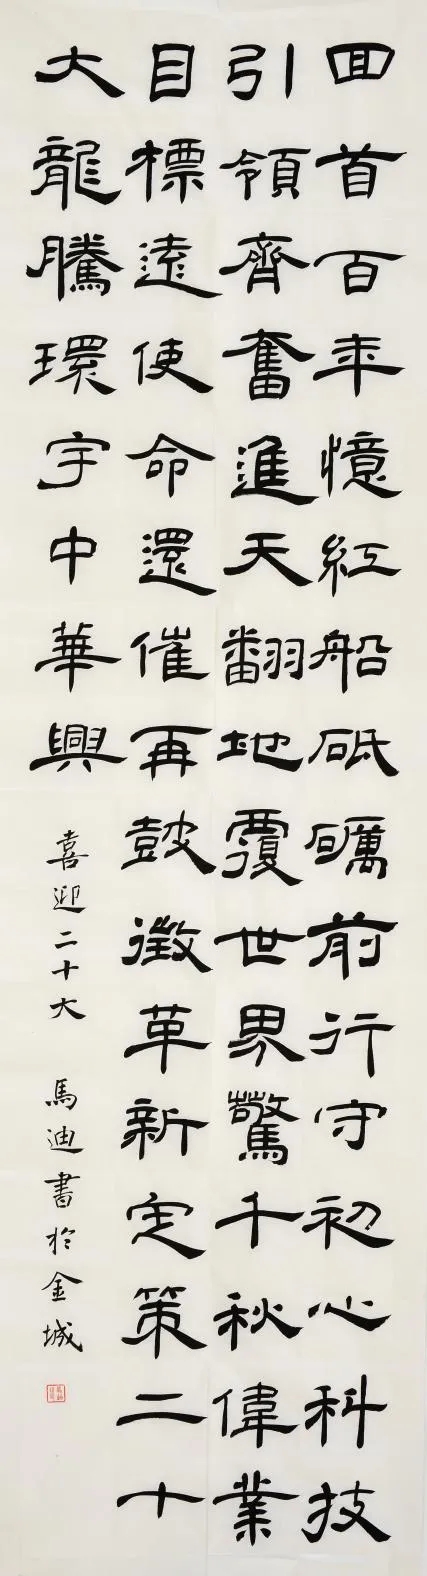 回首百年憶紅船砥礪前行守初心科技
引領齊奮進天翻地覆世界驚千秋偉業
目標遠使命還催再鼓徵革新定策二十
大龍騰環宇中華興
喜迎二十大 馬迪書於金城